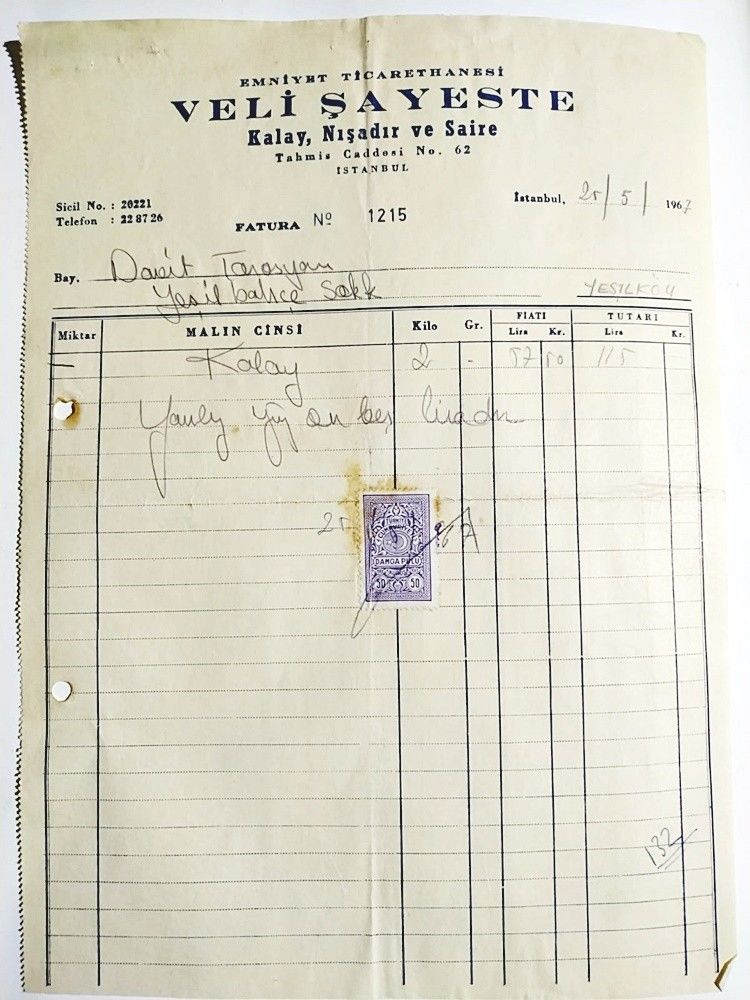 EMNİYET TİCARETHANESİ
VELİ ŞAYESTE
Kalay, Nışadır ve Saire
Tahmis Caddesi No. 62
İSTANBUL
Sicil No. : 20221
Telefon : 22 87 26
FATURA Nº 1215
İstanbul, 25/5/1967
Bay. Davit Tarasyan
Yeşilbahçe Sokk YEŞİLKÖY
Miktar MALIN CİNSİ Kilo Gr. FIATI Lira Kr. TUTARI Lira Kr.
Kalay 2 - 57 50 115
Yalnız yüz on beş liradır
25 967
TÜRKİYE
DAMGA PULU
30 50
132